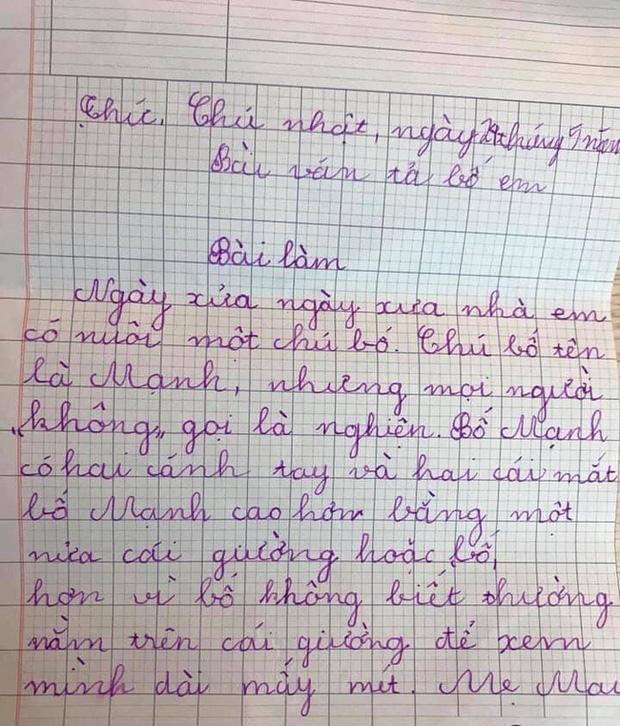 Chúc, Chủ nhật, ngày tháng năm
Bài văn tả bố em
Bài làm
Ngày xửa ngày xưa nhà em
có nuôi một chú bố. Chú bố tên
là Mạnh, nhưng mọi người
"không" gọi là nghiện. Bố Mạnh
có hai cánh tay và hai cái mắt
bố Mạnh cao hơn bằng một
nửa cái giường hoặc bố,
hơn vì bố không biết thường
nằm trên cái giường để xem
mình dài mấy mét. Mẹ Mai